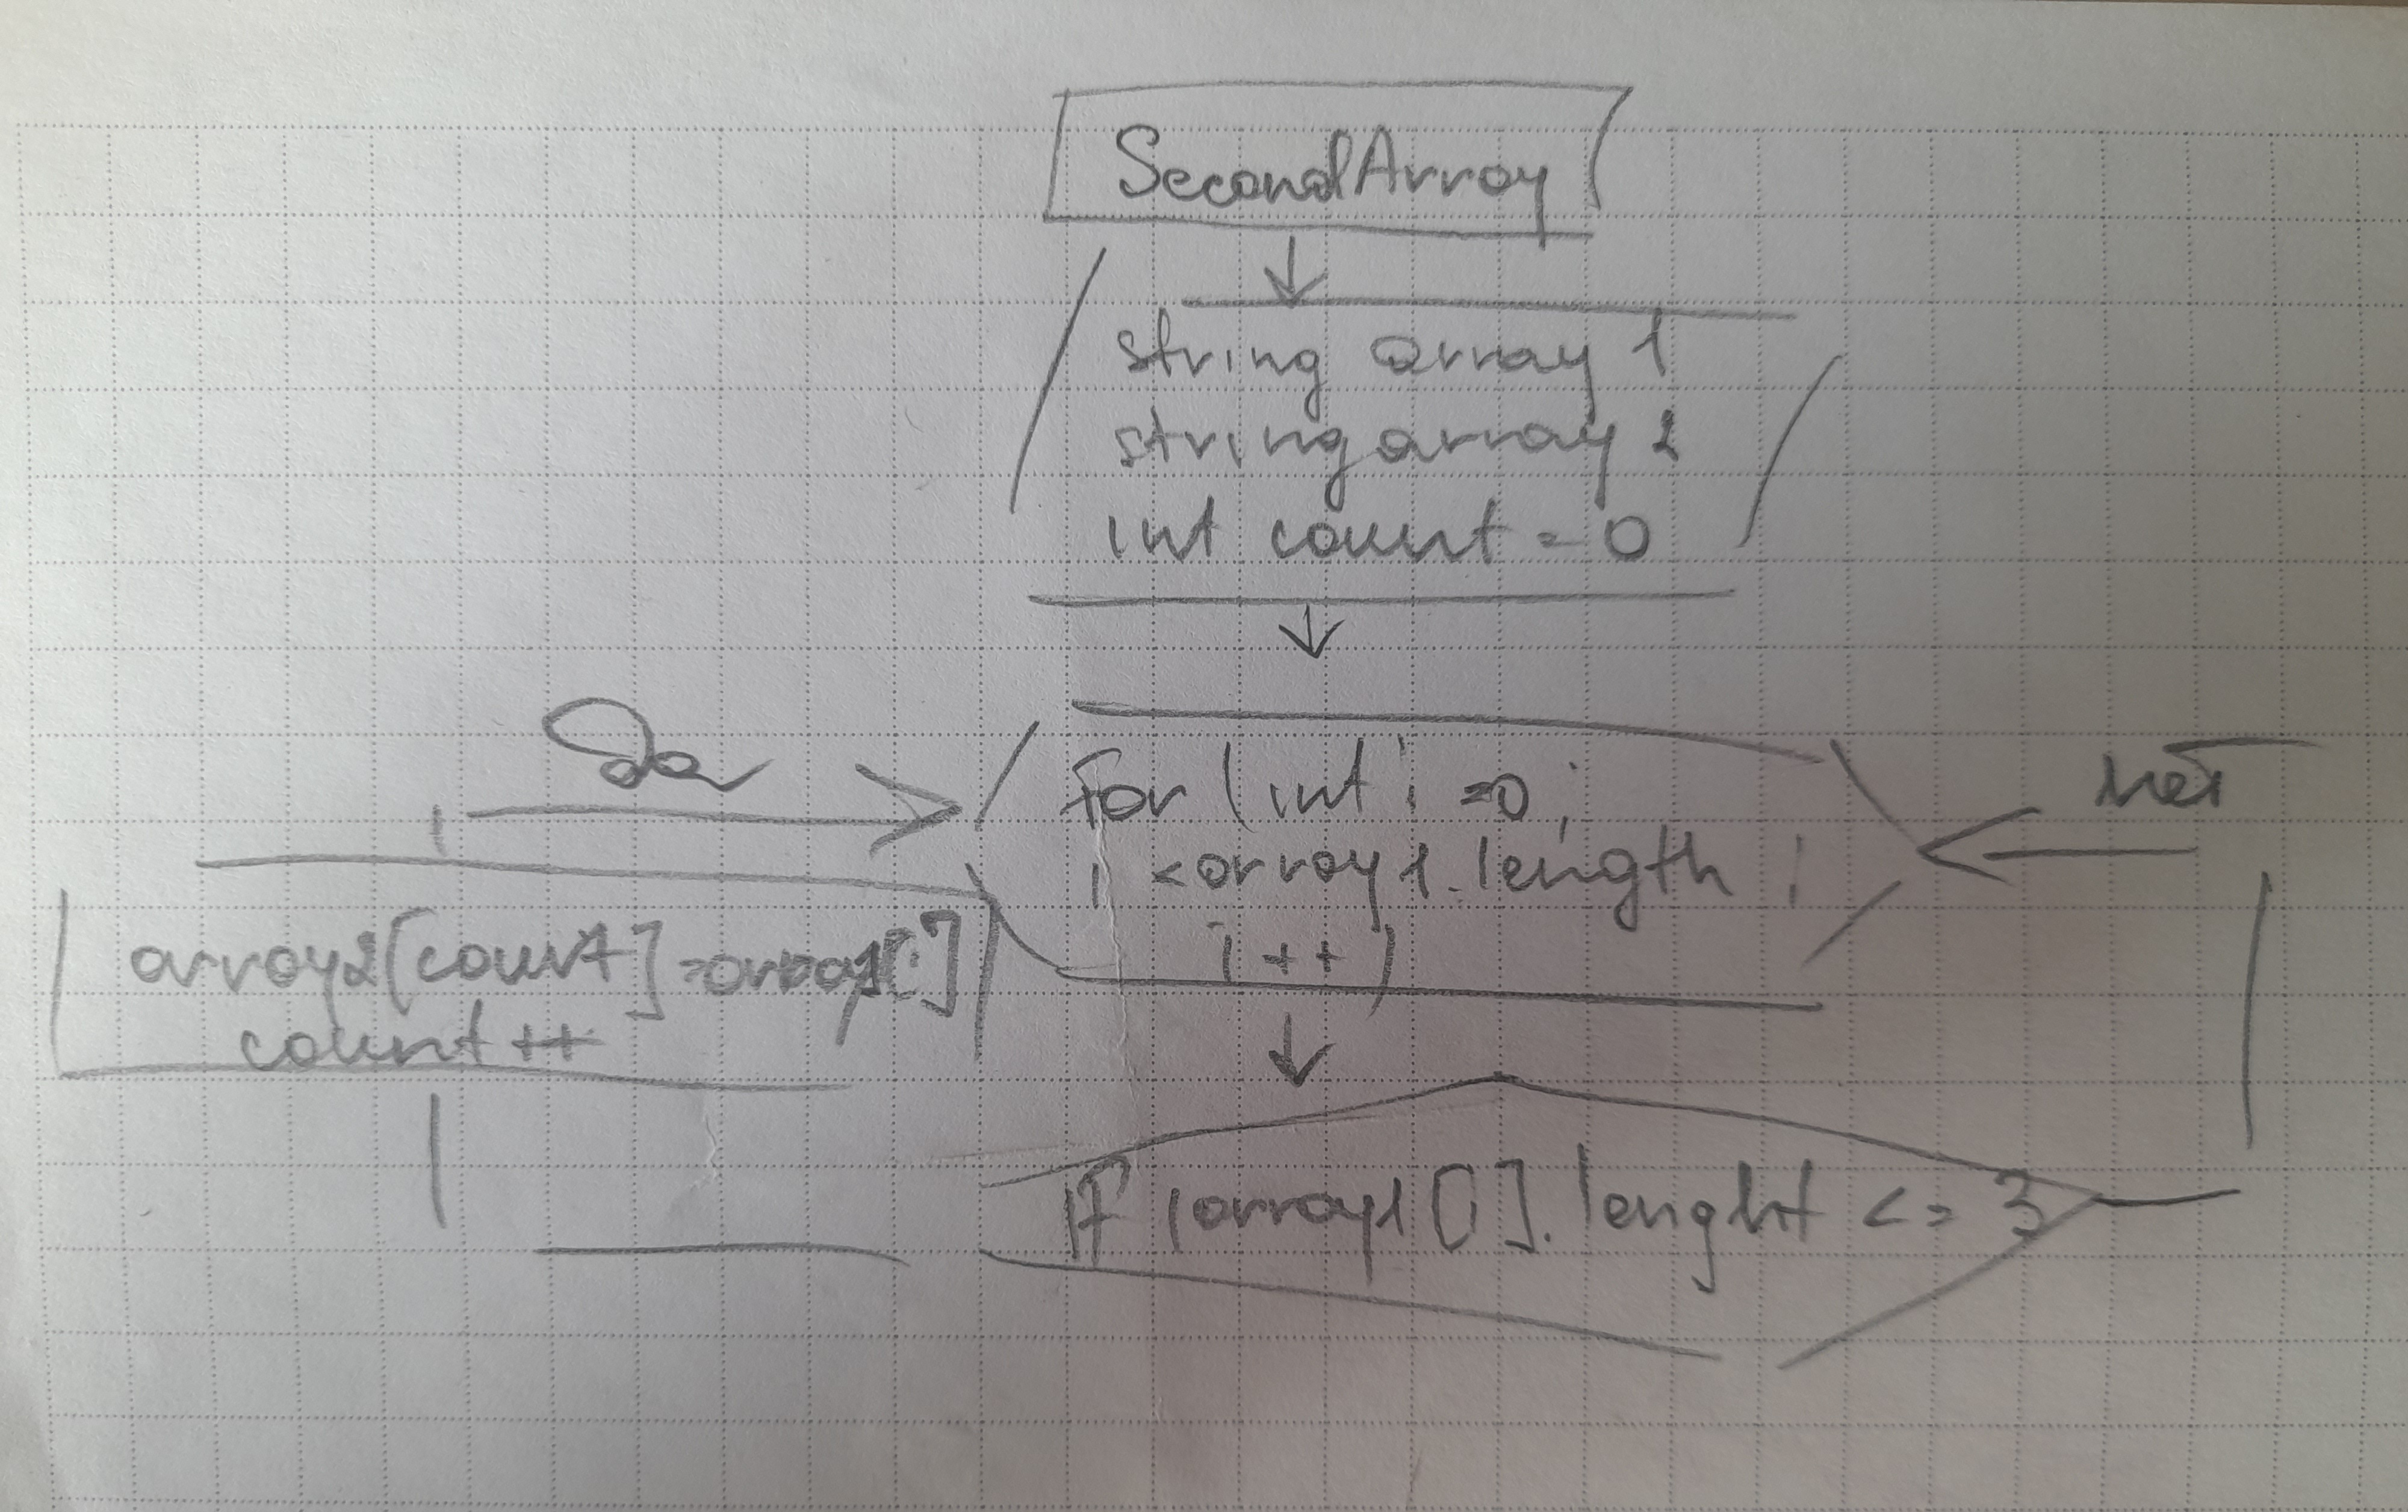 SecondArray
string array 1
string array 2
int count = 0
да
for (int i = 0;
i < array1.length;
i++)
нет
array2[count] = array1[i]
count++
if (array1[i].lenght <= 3